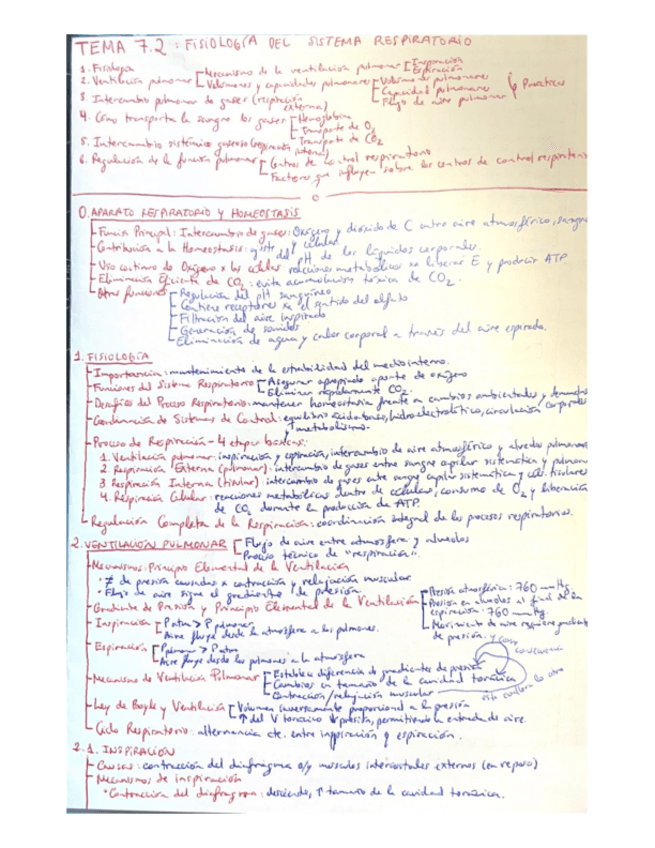 TEMA 7.2: FISIOLOGÍA DEL SISTEMA RESPIRATORIO
1. Fisiología
2. Ventilación pulmonar Mecanismo de la ventilación pulmonar Inspiración Espiración
Volúmenes y capacidades pulmonares Volúmenes pulmonares
Capacidad pulmonares Prácticas
Flujo de aire pulmonar
3. Intercambio pulmonar de gases (respiración externa)
4. Cómo transporta la sangre los gases Hemoglobina
Transporte de O2
Transporte de CO2
5. Intercambio sistémico gaseoso (respiración interna)
6. Regulación de la función pulmonar Centros de control respiratorio
Factores que influyen sobre los centros de control respiratorio
0. APARATO RESPIRATORIO Y HOMEOSTASIS
Función Principal: Intercambio de gases: Oxígeno y dióxido de C entre aire atmosférico, sangre
y células.
Contribución a la Homeostasis: ajuste del pH de los líquidos corporales.
Uso continuo de Oxígeno x las células reacciones metabólicas xa liberar E y producir ATP
Eliminación Eficiente de CO2: evita acumulación tóxica de CO2.
Otras funciones Regulación del pH sanguíneo
Contiene receptores xa el sentido del olfato
Filtración del aire inspirado
Generación de sonidos
Eliminación de agua y calor corporal a través del aire espirado.
1. FISIOLOGÍA
Importancia: mantenimiento de la estabilidad del medio interno.
Funciones del Sistema Respiratorio Asegurar apropiado aporte de oxígeno
Eliminar rápidamente CO2.
Desafíos del Proceso Respiratorio: mantener homeostasia frente a cambios ambientales y
Coordinación de Sistemas de Control: equilibrio ácido-base, hidroelectrolítico, circulación corporales
y metabolismo.
Proceso de Respiración - 4 etapas básicas:
1. Ventilación pulmonar: inspiración y espiración, intercambio de aire atmosférico y alveolos pulmonares
2. Respiración Externa (pulmonar): intercambio de gases entre sangre capilar sistemática y pulmon
3. Respiración Interna (tisular): intercambio de gases entre sangre capilar sistemática y cél. tisulares
4. Respiración Celular: reacciones metabólicas dentro de células, consumo de O2 y liberación
de CO2 durante la producción de ATP.
Regulación Completa de la Respiración: coordinación integral de los procesos respiratorios.
2. VENTILACIÓN PULMONAR Flujo de aire entre atmósfera y alveolos
Proceso técnico de "respiración".
Mecanismos: Principio Elemental de la Ventilación
• ≠ de presión causadas x contracción y relajación muscular.
• Flujo de aire sigue el gradiente de presión.
Gradiente de Presión y Principio Elemental de la Ventilación Presión atmosférica: 760 mmHg
Presión en alveolos al final de la
espiración: 760 mmHg.
Movimiento de aire requiere gradiente
de presión.
Inspiración P atm > P pulmonar
Aire fluye desde la atmósfera a los pulmones.
Espiración P pulmonar > P atm
Aire fluye desde los pulmones a la atmósfera
Mecanismo de Ventilación Pulmonar Establece diferencia de gradientes de presión
Cambios en tamaño de la cavidad torácica
Contracción/relajación muscular
consecuencia
Ley de Boyle y Ventilación Volumen inversamente proporcional a la presión
↑ del V torácico ↓ presión, permitiendo la entrada de aire.
Ciclo Respiratorio: alternancia cte. entre inspiración y espiración.
2.1. INSPIRACIÓN
Causas: contracción del diafragma o/y músculos intercostales externos (en reposo)
Mecanismos de inspiración
• Contracción del diafragma: desciende, ↑ tamaño de la cavidad torácica.